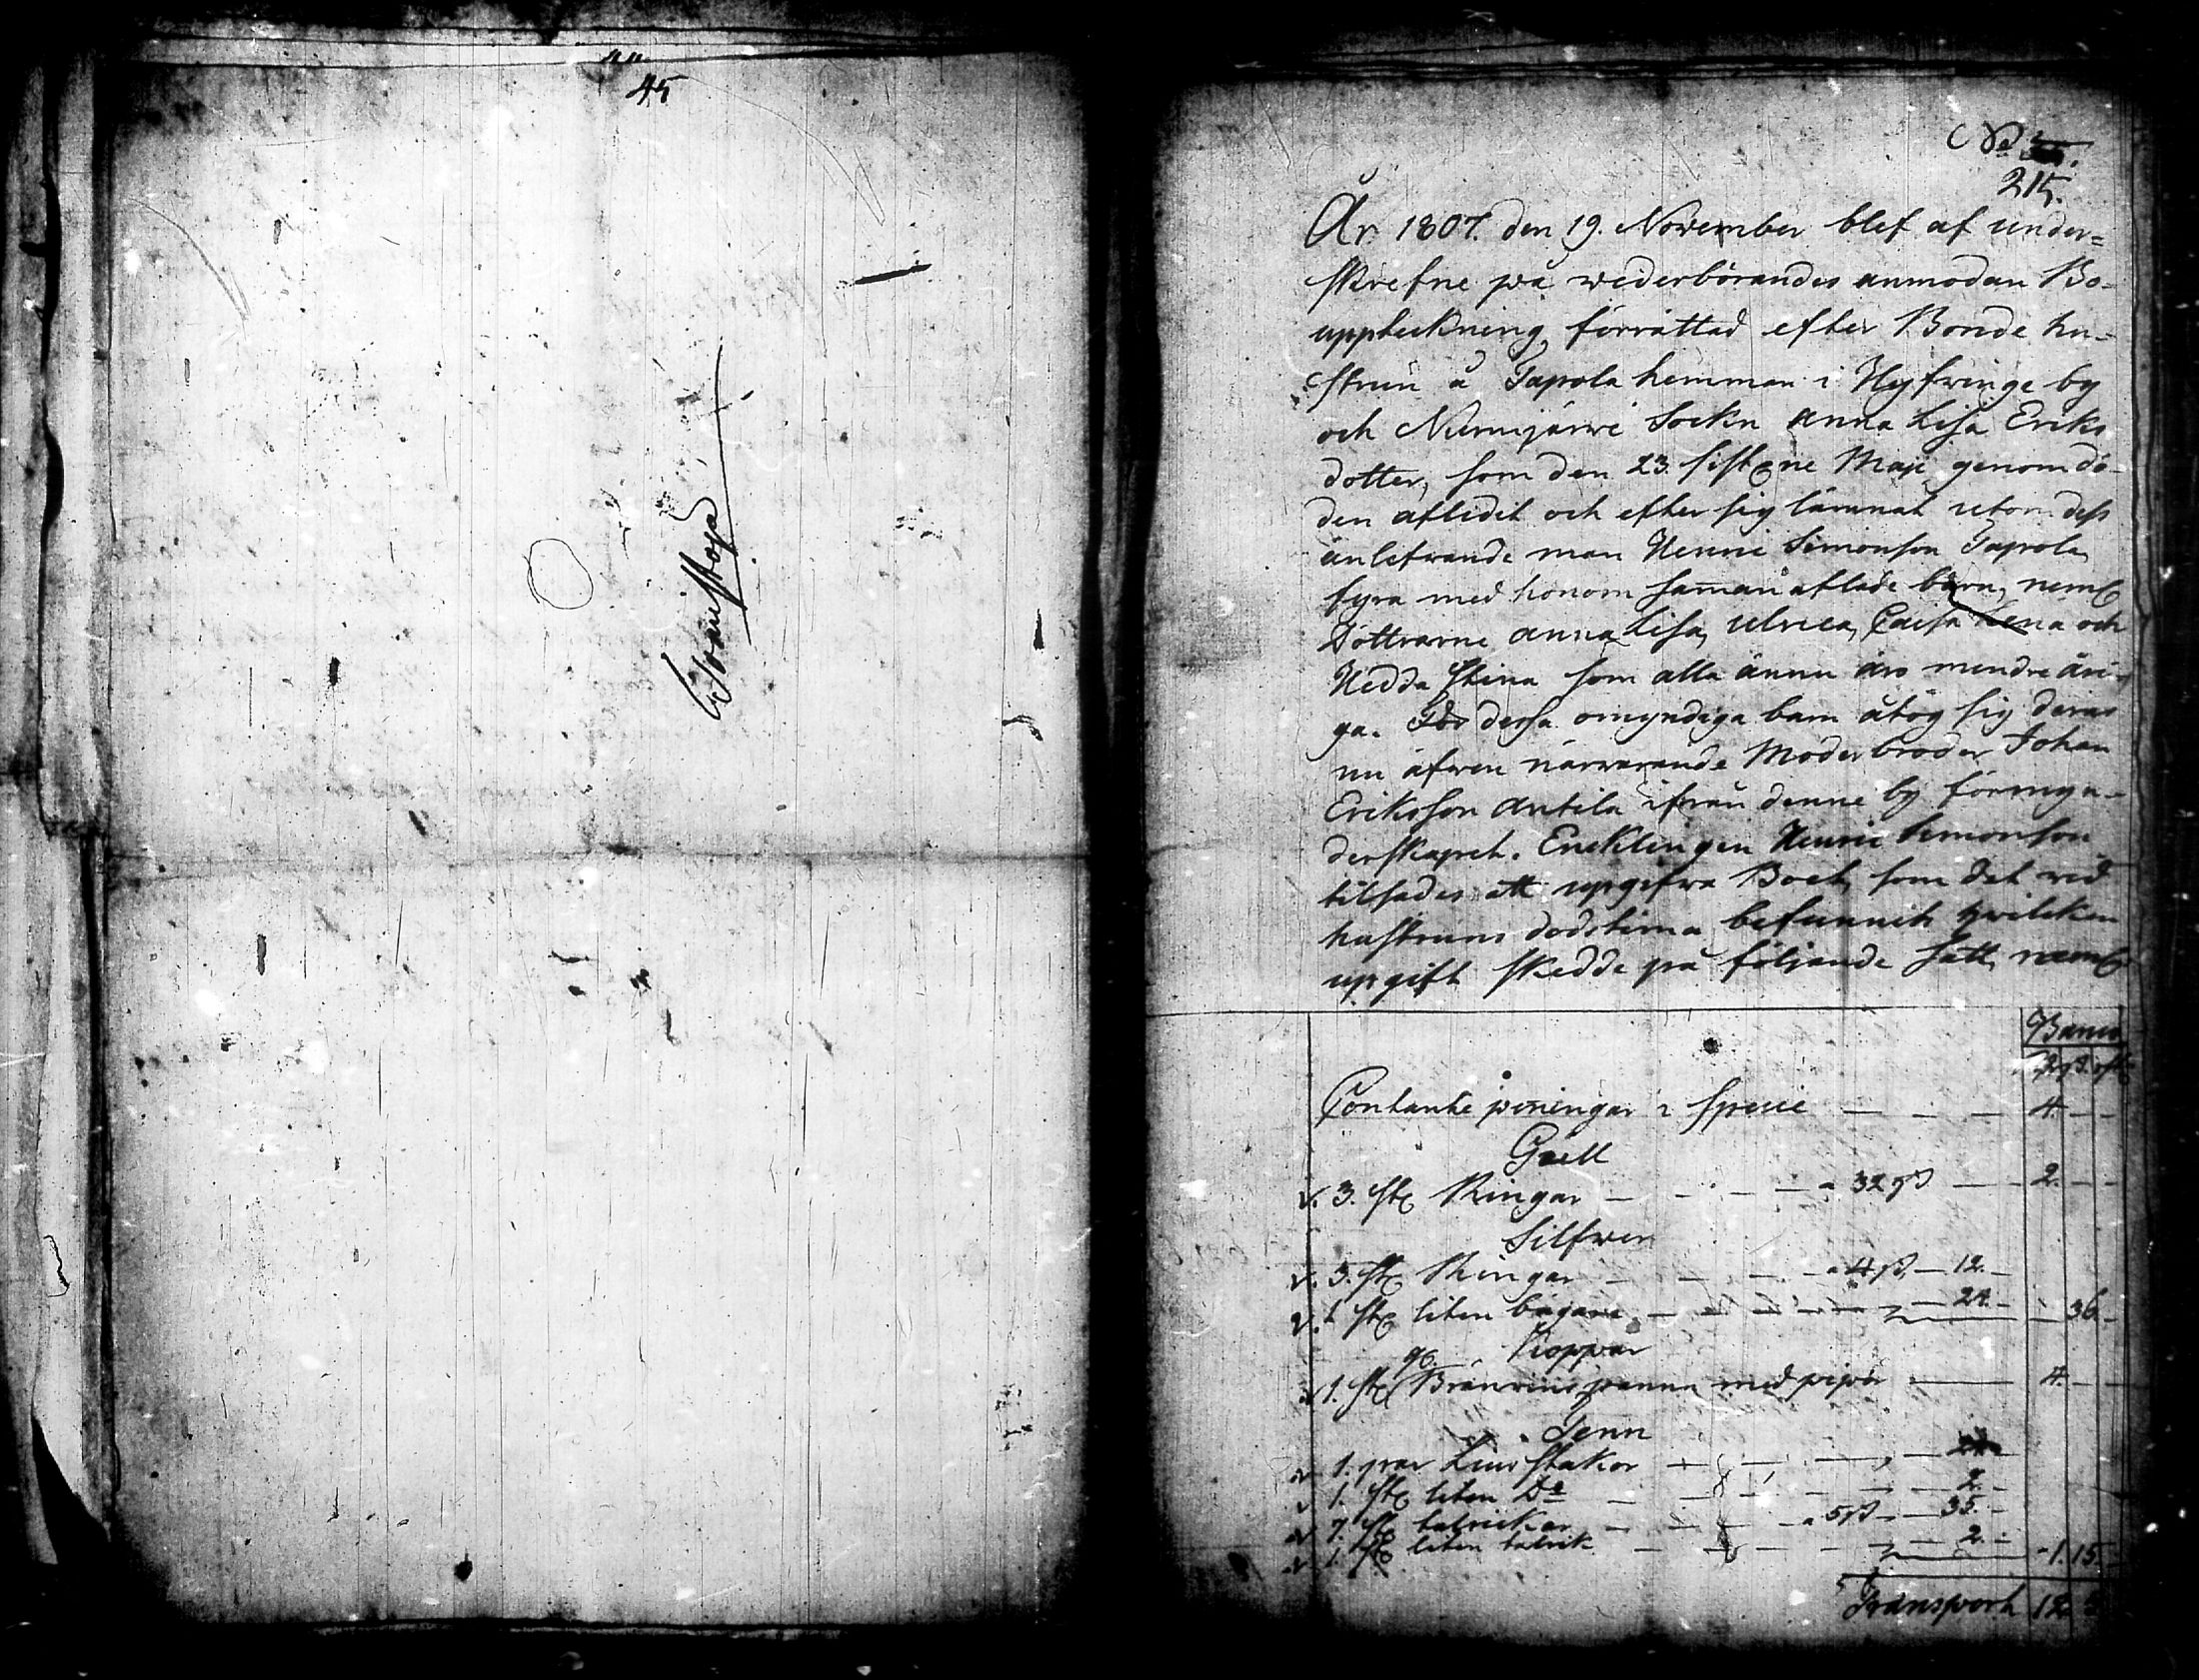 45
No
215.
År 1807. den 19. November blef af under=
skrefne på wederbörandes anmodan Bo-
uppteckning förrättad efter Bonde hu-
strun å Tapola hemman i Hyfvinge by
och Nurmijärvi Sockn Anna Lisa Eriks
dotter, som den 23. sistne Maji genom dö-
den aflidit och efter sig lämnat utom dess
änlefvande man Henric Simonson Tapola,
fyra med honom samman aflade barn, neml
Döttrarne Anna Lisa, Ulrica, Caisa Lena och
Hedda Stina som alla ännu äro mindre åri-
ga. För dessa omyndiga barn åtog sig deras
nu äfven närvarande Moderbroder Johan
Eriksson Antila ifrån denne by förmyn-
derskapet. Encklingen Henric Simonson
tilsades att upgifva Boet, som det vid
hustruns dödstima befunnits hvilcken
upgift skedde på följande sätt, neml
Banco
Contante peningar i Specie — — — 4. — —
Gull
v. 3. st Ringar — — — — a 32 ß — — 2. — —
Silfver
v. 3. st Ringar — — — — a 4 ß — 12. —
v. 1 st liten bägare — — — — 24. — 36. —
Koppar
v 1. st Bränvins panna med pipor — 4. — —
Tenn
v 1. par Ljus stakar — — — —
v 1. st liten Do — — — — 2. —
v 7. st talrickar — — — a 5 ß — 35. —
v 1. st liten talrik — — — — 2. — 1. 15. —
Transport 12